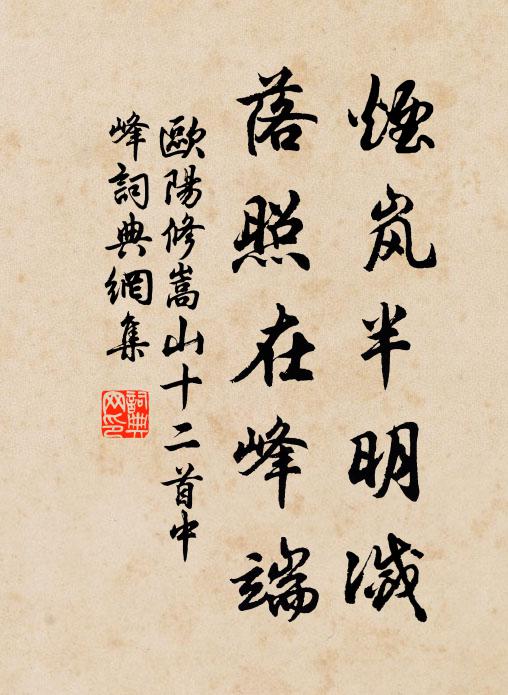 煙岚半明滅
落照在峰端
歐陽修嵩山十二首中
峰詞典網集
詞典网印